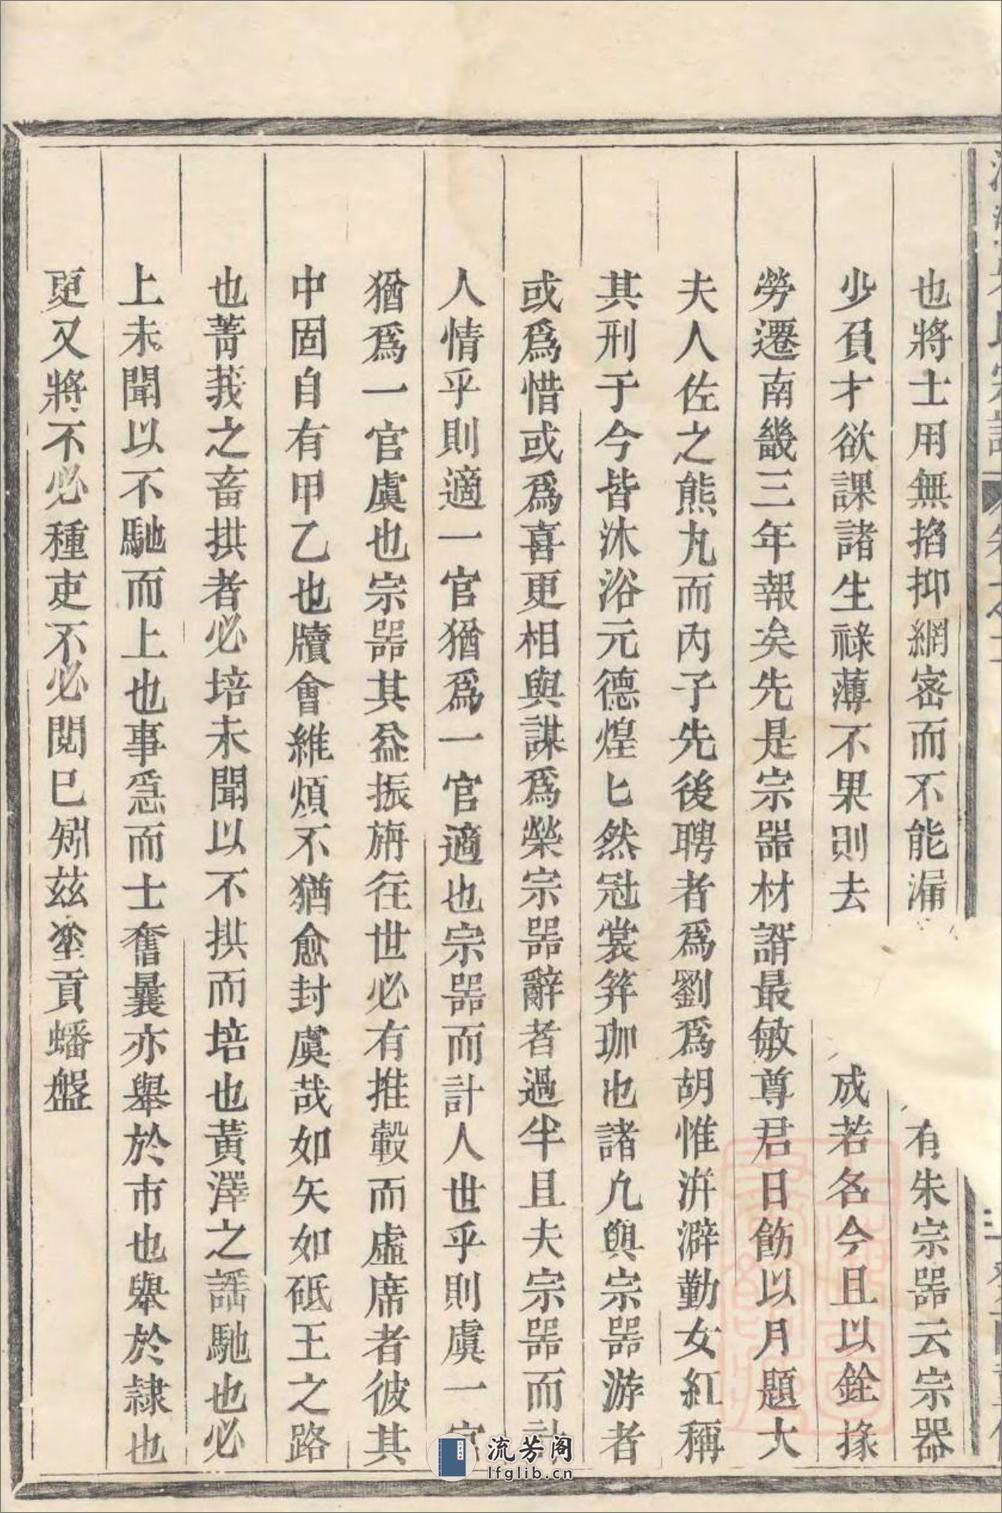 也將士用無搯抑網宻而不能漏有朱宗器云宗器
少負才欲課諸生祿薄不果則去成若名今且以銓掾
勞遷南畿三年報矣先是宗器材諝最敏尊君日飭以月題大
夫人佐之熊丸而內子先後聘者爲劉爲胡惟洴澼勤女紅稱
其刑于今皆沐浴元德煌匕然冠裳筓珈也諸凢與宗器游者
或爲惜或爲喜更相與謀爲榮宗器辭者過半且夫宗器而計
人情乎則適一官猶爲一官適也宗器而計人世乎則虞一官
猶爲一官虞也宗器其益振旃往世必有推轂而虛席者彼其
中固自有甲乙也牘會維煩不猶愈封虞哉如矢如砥王之路
也菁莪之畜拱者必培未聞以不拱而培也黃澤之譁馳也必
上未聞以不馳而上也事急而士奮曩亦舉於市也舉於隸也
更又將不必種吏不必閥已矧茲塗貢蟠盤
流芳阁
lfglib.cn